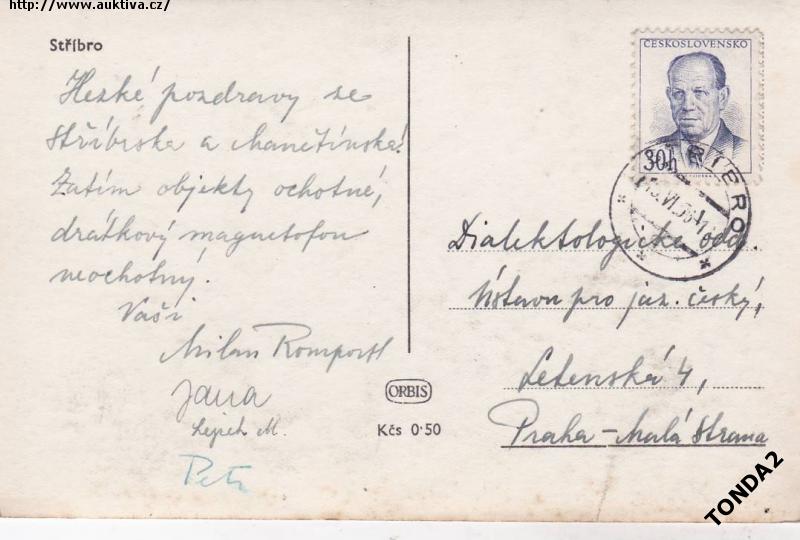 http://www.auktiva.cz/
Stříbro
Hezké pozdravy ze
Stříbrska a Manětínska!
Zatím objekty ochotné,
drátkový magnetofon
neochotný.
Vaši
Milan Romportl
Jana
M.
Petr
ORBIS
Kčs 0·50
ČESKOSLOVENSKO
30h
Dialektologické odd.
Ústavu pro jaz. český,
Letenská 4,
Praha – Malá Strana
TONDA2